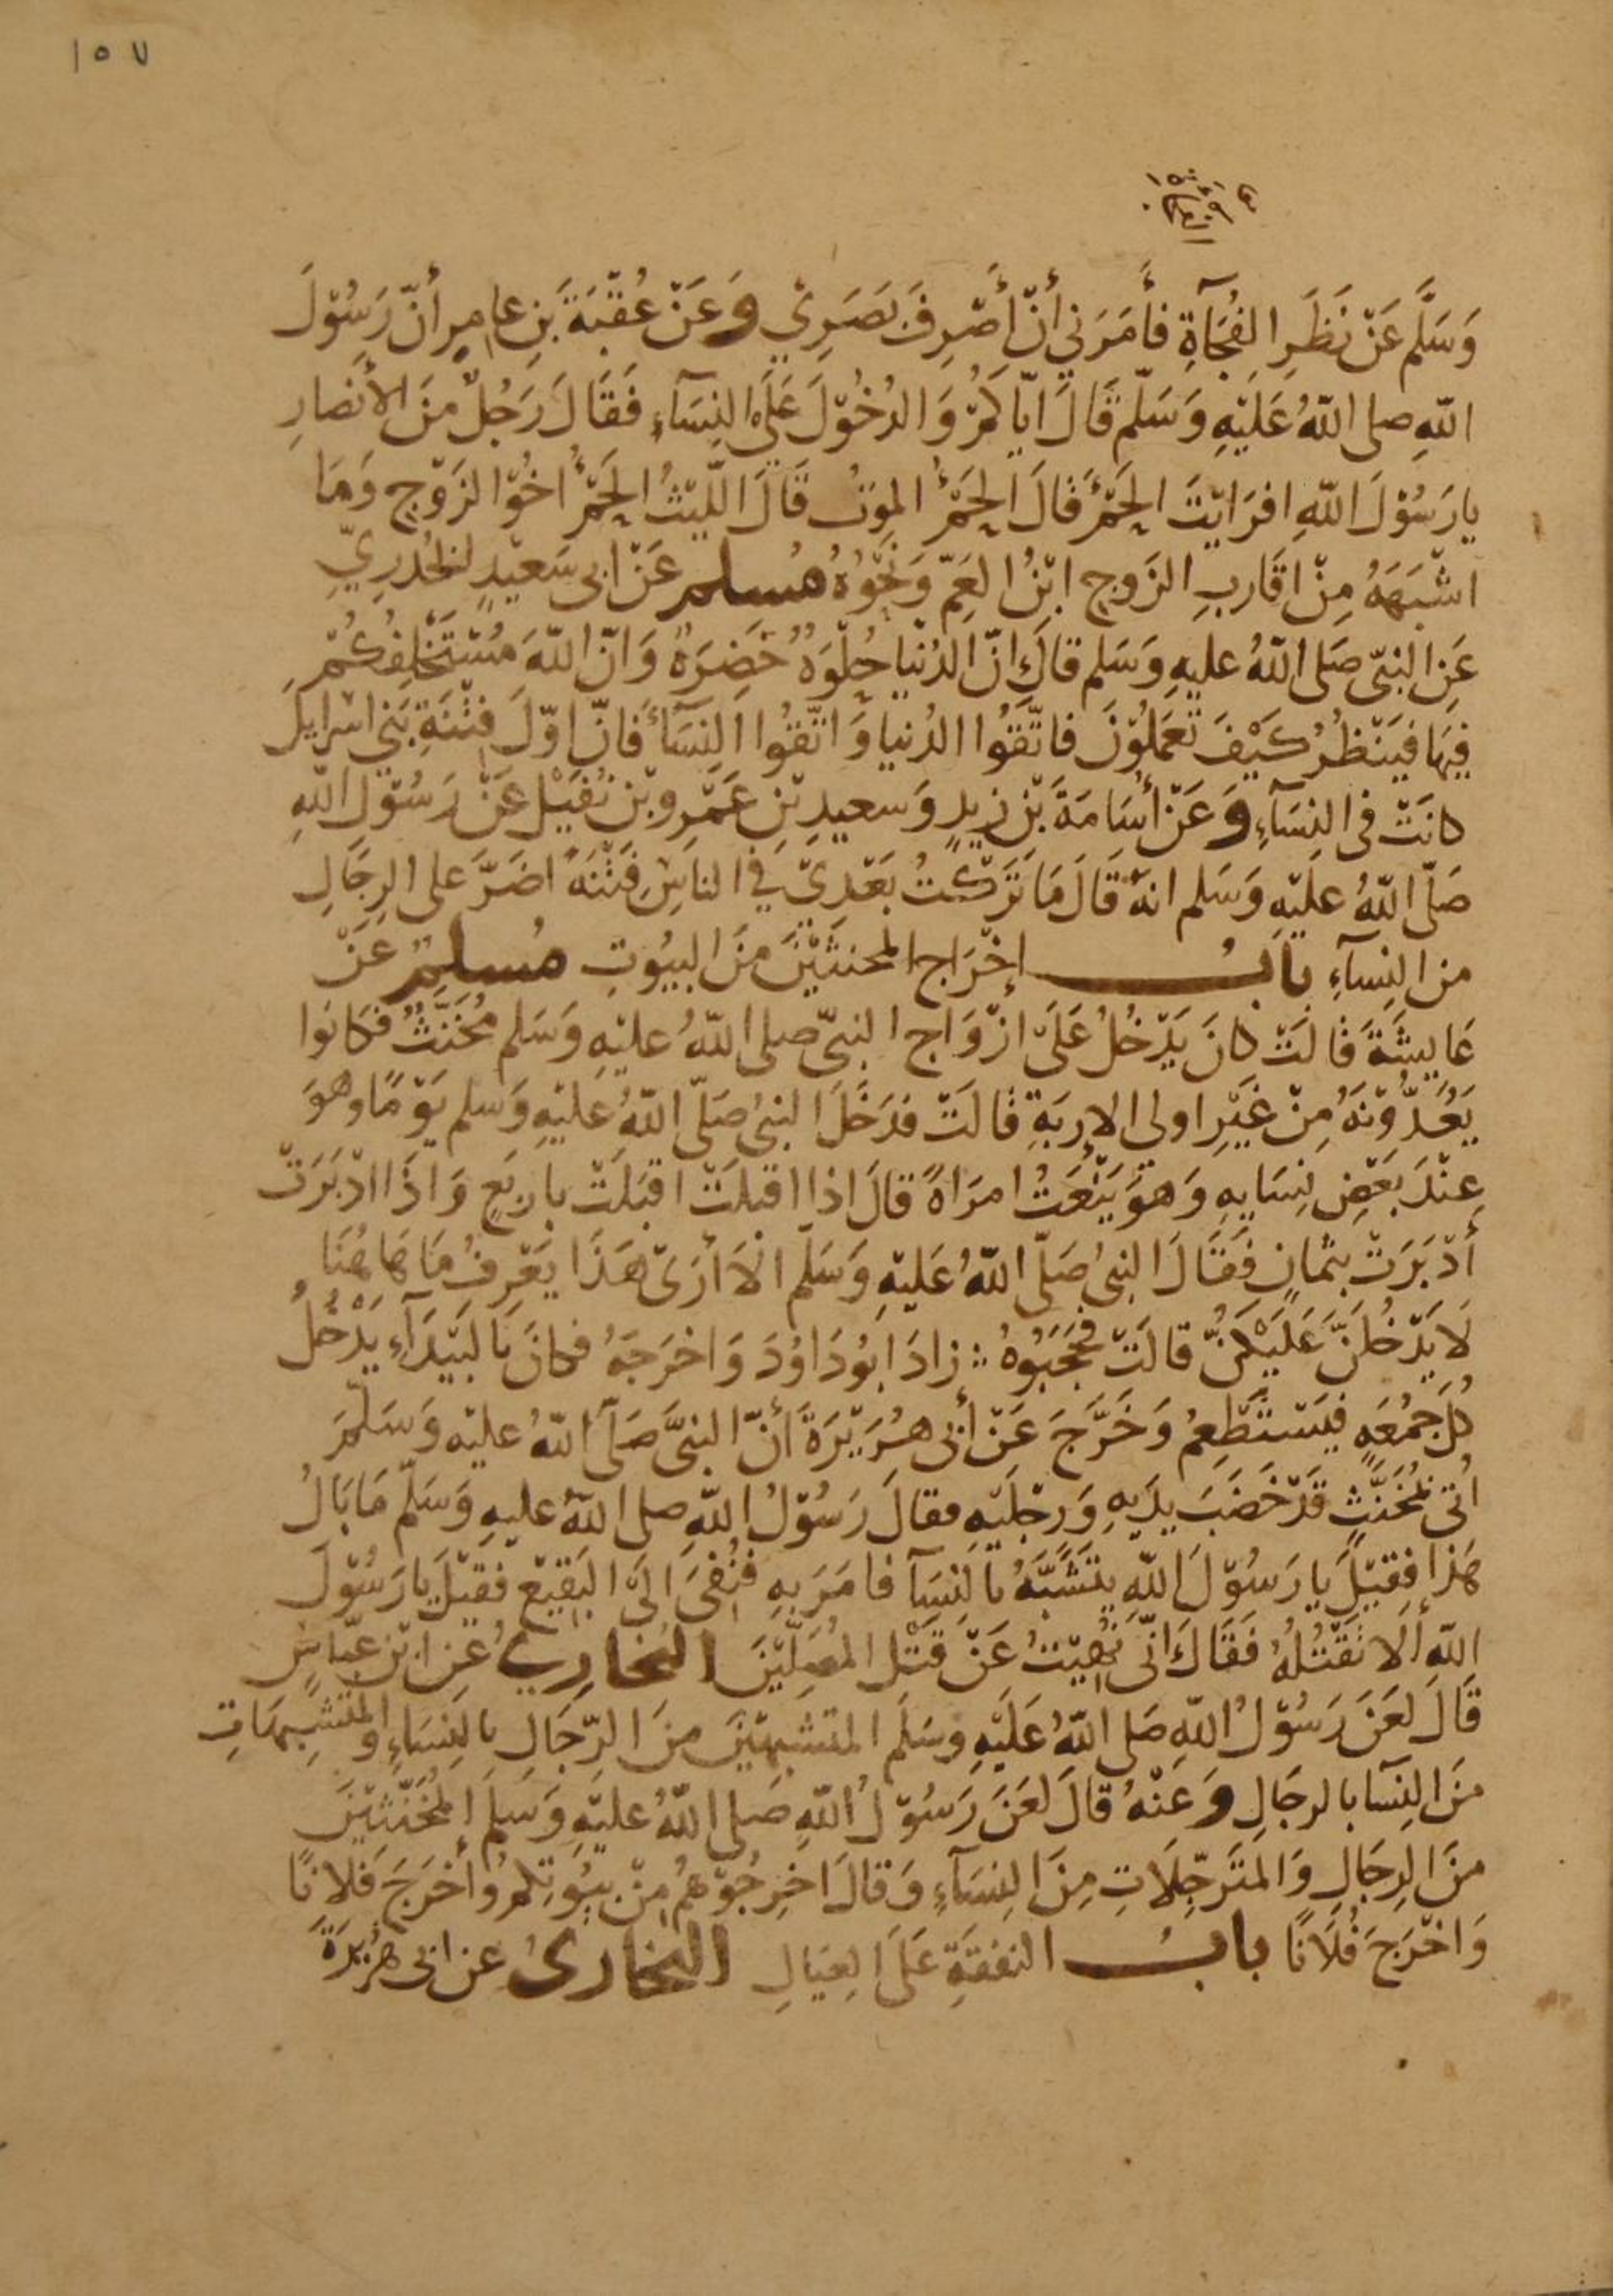 ١٥٧
وَسَلَّم عَنْ نَظَرِ الفُجَآةِ فأَمَرَنِي أَنْ أَصْرِفَ بَصَرِي وَعَنْ عُقْبَةَ بنِ عامِرٍ أنّ رَسُوْلَ
اللهِ صلى اللهُ عَلَيْهِ وَسَلّم قَالَ ايّاكمْ وَالدُخُوْلَ عَلَى النِسَآءِ فَقَالَ رَجُلٌ منَ الأنصارِ
يا رَسُوْلَ اللهِ افرَايْتَ الحَمْؤَ قَالَ الحَمْؤُ الموتُ قَالَ اللّيْثُ الحَمْؤُ اخُوْ الزَوْجِ وَمَا
اشْبَهَهُ مِنْ اقَارِبِ الزَوجِ ابْنُ العَمِّ وَنَحْوُهُ مُسلم عَنْ ابى سَعيْدٍ الخدرِيّ
عَنِ النبىّ صَلى اللهُ عليهِ وَسَلم قالَ انّ الدُنْيا حُلْوَةٌ خَضِرَةٌ وَانّ اللهَ مُسْتَخْلِفُكُمْ
فِيهَا فيَنْظُرُ كَيْفَ تعَمَلُوْنَ فاتَّقُوا الدُنيا وَاتَّقُوا النِسَآءَ فَانّ اوّلَ فِتْنَةِ بَنِي اسْرايلَ
كانَتْ فى النِسَآءِ وَعَنْ أُسَامَةَ بْنِ زيدٍ وَسعيدِ بْنِ عَمْرِو بْنِ نُفَيْلٍ عَنْ رَسُوْلِ اللهِ
صَلّى اللهُ عَلَيْهِ وَسَلم انهُ قَالَ مَا تَرَكْتُ بَعْدِيْ فِي الناسِ فِتْنَةً اضَرَّ على الرِجَالِ
من النِسآءِ بابُ إخْرَاج المخنثيْنَ منَ البيُوتِ مُسلمٌ عَنْ
عَايشَةَ قَالَتْ كانَ يَدْخُلُ عَلَى ازْوَاج النبىّ صلى اللهُ عليْهِ وَسَلم مُخَنَّثٌ فكانوا
يَعُدُّوْنَهُ مِنْ غَيْرِ اولى الإربَةِ قالَتْ فدَخَلَ النبىُ صَلّى اللهُ عَليْهِ وَسَلم يَوْمًا وهوَ
عِنْدَ بَعْضِ نِسَايهِ وَهوَ يَنْعَتُ امرَاةً قالَ اذا اقبلَتْ اقبَلَتْ باربَعٍ وَاذَا ادْبَرَتْ
أدْبَرَتْ بثمانٍ فَقَالَ النبىُ صَلّى اللهُ عَليْهِ وَسَلّم الاَ أرَى هَذَا يَعْرِفُ مَا هَاهُنَا
لَا يَدْخُلَنَّ عَلَيْكُنَّ قالَتْ فحَجَبُوْهُ ؞ زادَ ابُو دَاوُدَ وَاخرَجَهُ فكانَ بالبَيْدَآءِ يَدْخُلُ
كُلَ جُمُعَةٍ فيَسْتَطْعِمُ وَخَرَّجَ عَنْ أبى هُرَيْرَةَ أنّ النبىَّ صَلّى اللهُ عليْه وَسَلّمَ
اُتى بمُخَنَّثٍ قَدْ خَضَبَ يدَيهِ وَرجْلَيْهِ فقالَ رَسُوْلُ اللهِ صلى اللهُ عليهِ وَسَلّم مَا بَالُ
هَذا فقِيْلَ يا رَسُوْلَ اللهِ يتَشَبَّهُ بالنِسَآ فامَرَ بهِ فنُفِىَ الَى البَقِيْعِ فقِيْلَ يا رَسُوْلَ
اللهِ ألاَ نَقْتُلُهُ فَقَالَ انّى نُهِيْتُ عَنْ قَتْلِ المُصَلّيْنَ البخاريُ عَنِ ابْنِ عبّاسٍ
قَالَ لعَنَ رَسُوْلُ اللهِ صَلى اللهُ عَلَيْهِ وسَلَم المتشبهيْنَ منَ الرّجَالِ بالنِسَاءِ والمتشبِهَاتِ
منَ النِسَآ بالرجَالِ وَعَنْهُ قالَ لعَنَ رَسُوْلُ اللهِ صَلى اللهُ عليْهِ وَسَلمَ المخَنّثيْنَ
منَ الرِجَالِ وَالمتَرجّلَاتِ مِنَ النِسَآءِ وَقالَ اخرِجُوْهُمُ مِنْ بيُوتِكمُ وأخرَجَ فلانًا
وَاخْرَجَ فُلَانًا بابُ النفقَةِ عَلَى العِيَالِ البخارىُ عن ابى هُرَيْرَةَ